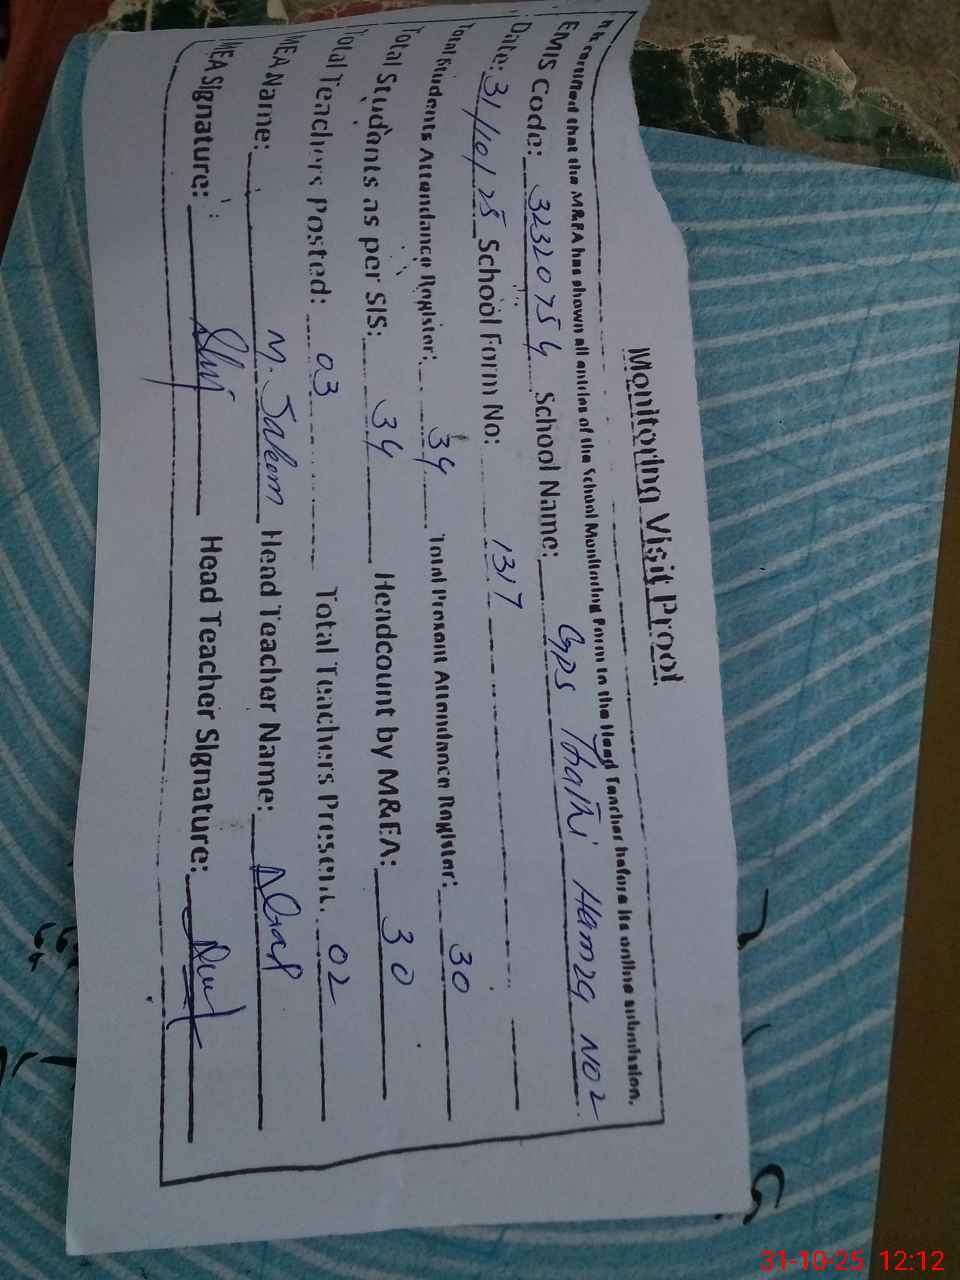 Monitoring Visit Proof
It is certified that the M&EA has shown all entries of the School Monitoring Form to the Head Teacher before its online submission.
EMIS Code: 32320754 School Name: GPS Thathi Hamza NO 2
Date: 31/10/25 School Form No: 1317
Total Students Attendance Register: 34 Total Present Attendance Register: 30
Total Students as per SIS: 34 Headcount by M&EA: 30
Total Teachers Posted: 03 Total Teachers Present: 02
MEA Name: M. Saleem Head Teacher Name:
MEA Signature: Head Teacher Signature:
31-10-25 12:12